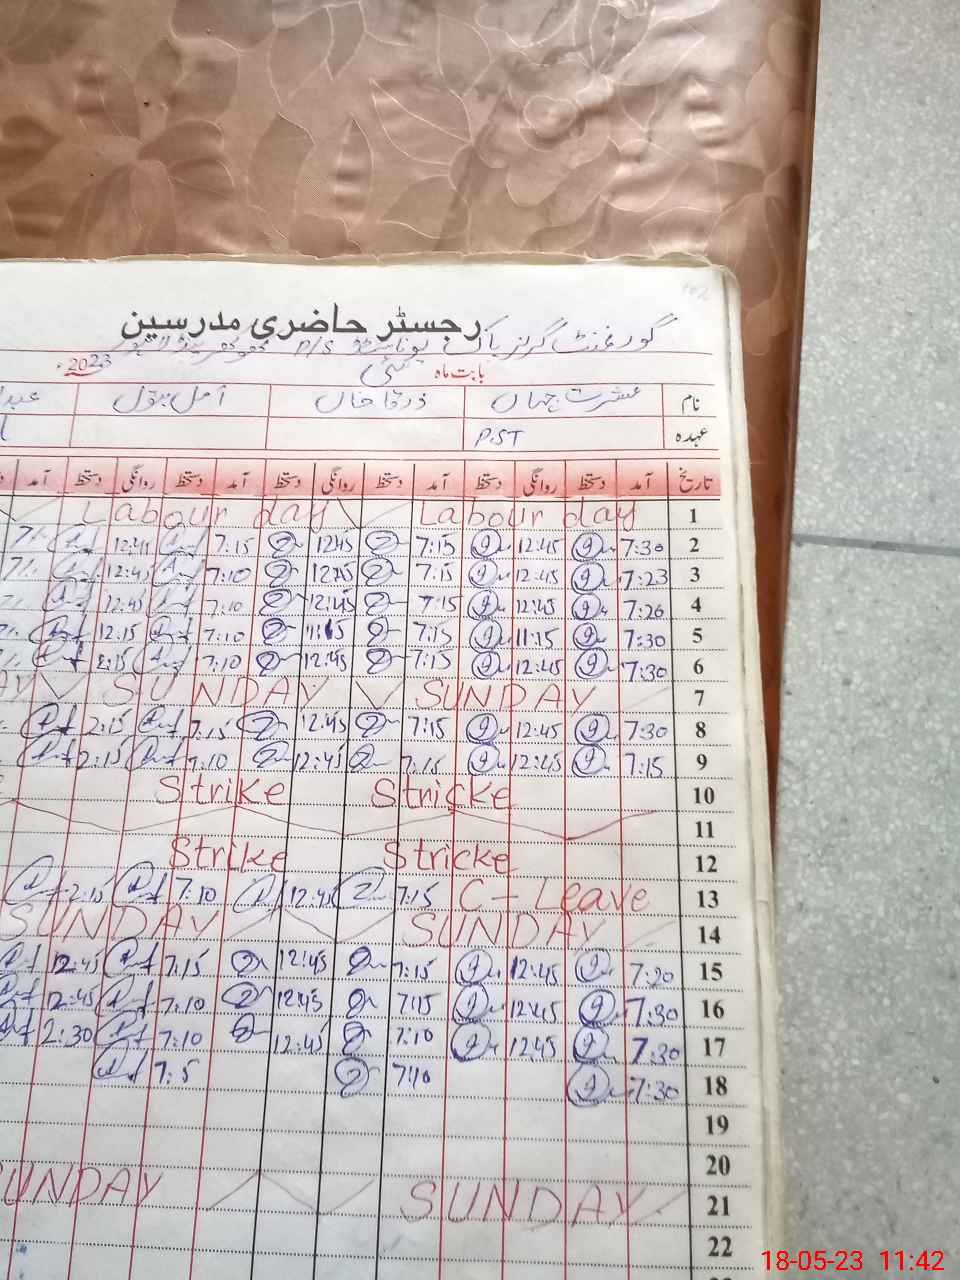 رجسٹر حاضری مدرسین
گورنمنٹ گرلز پاک یونائیٹڈ P/S
بابت ماہ مئی 2023
نام عشرت جہاں ذرقا خان امل بتول
عہدہ P.ST
تاریخ آمد دستخط روانگی دستخط آمد دستخط روانگی دستخط آمد دستخط روانگی دستخط آمد
1 Labour day Labour day
2 7:30 12:45 7:15 1245 7:15 12:45
3 7:23 12:45 7:15 12:45 7:10 12:45
4 7:26 12:45 7:15 12:45 7:10 12:45
5 7:30 11:15 7:15 11:15 7:10 12:15
6 7:30 12:45 7:15 12:45 7:10 2:15
7 SUNDAY SUNDAY
8 7:30 12:45 7:15 12:45 7:15 2:15
9 7:15 12:45 7:15 12:45 7:10 2:15
10 Stricke Strike
11
12 Stricke Strike
13 C - Leave 7:15 12:45 7:10 2:15
14 SUNDAY SUNDAY
15 7:20 12:45 7:15 12:45 7:15 12:45
16 7:30 1245 7:15 12:45 7:10 12:45
17 7:30 1245 7:10 12:45 7:10 2:30
18 7:30 7:10 7:5
19
20
21 SUNDAY SUNDAY
22
18-05-23 11:42